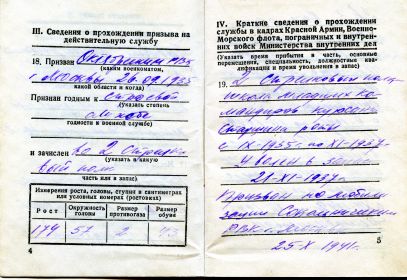 III. Сведения о прохождении призыва на
действительную службу
18. Призван Октябрьским РВК
(каким военкоматом,
г Москвы 26.09.1935
какой области и когда)
Призван годным к строевой
(указать степень
службе
годности к военной службе)
и зачислен во 2 Стрелко
(указать в какую
вый полк
часть или в запас)
Измерения роста, головы, ступни в сантиметрах
или условных номерах (ростовках)
Рост
Окружность головы
Размер противогаза
Размер обуви
174 57 2 43
4
IV. Краткие сведения о прохождении
службы в кадрах Красной Армии, Военно-
Морского флота, пограничных и внутрен-
них войск Министерства внутренних дел
(Указать время прибытия в часть, основные
перемещения, специальность, должностные ква-
лификации и время увольнения в запас)
19. 2 Стрелковый полк
школа младших ко
мандиров курсант
Старшина роты
с IX-1935г по XI-1937г
Уволен в запас
21-XI-1937г
Призван по мобили
зации
РВК г. Москвы
25-X 1941г
5